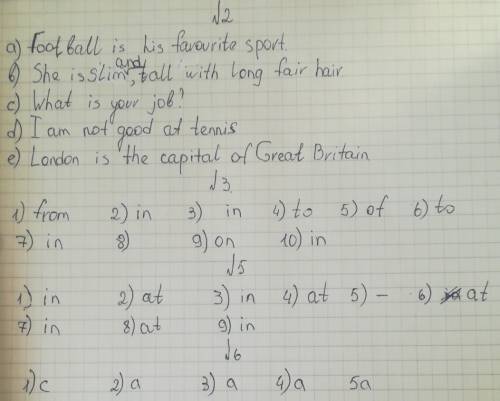 √2
a) Football is his favourite sport.
b) She is slim, and tall with long fair hair
c) What is your job?
d) I am not good at tennis
e) London is the capital of Great Britain
√3.
1) from 2) in 3) in 4) to 5) of 6) to
7) in 8) 9) on 10) in
√5
1) in 2) at 3) in 4) at 5) - 6) at
7) in 8) at 9) in
√6
1) c 2) a 3) a 4) a 5a